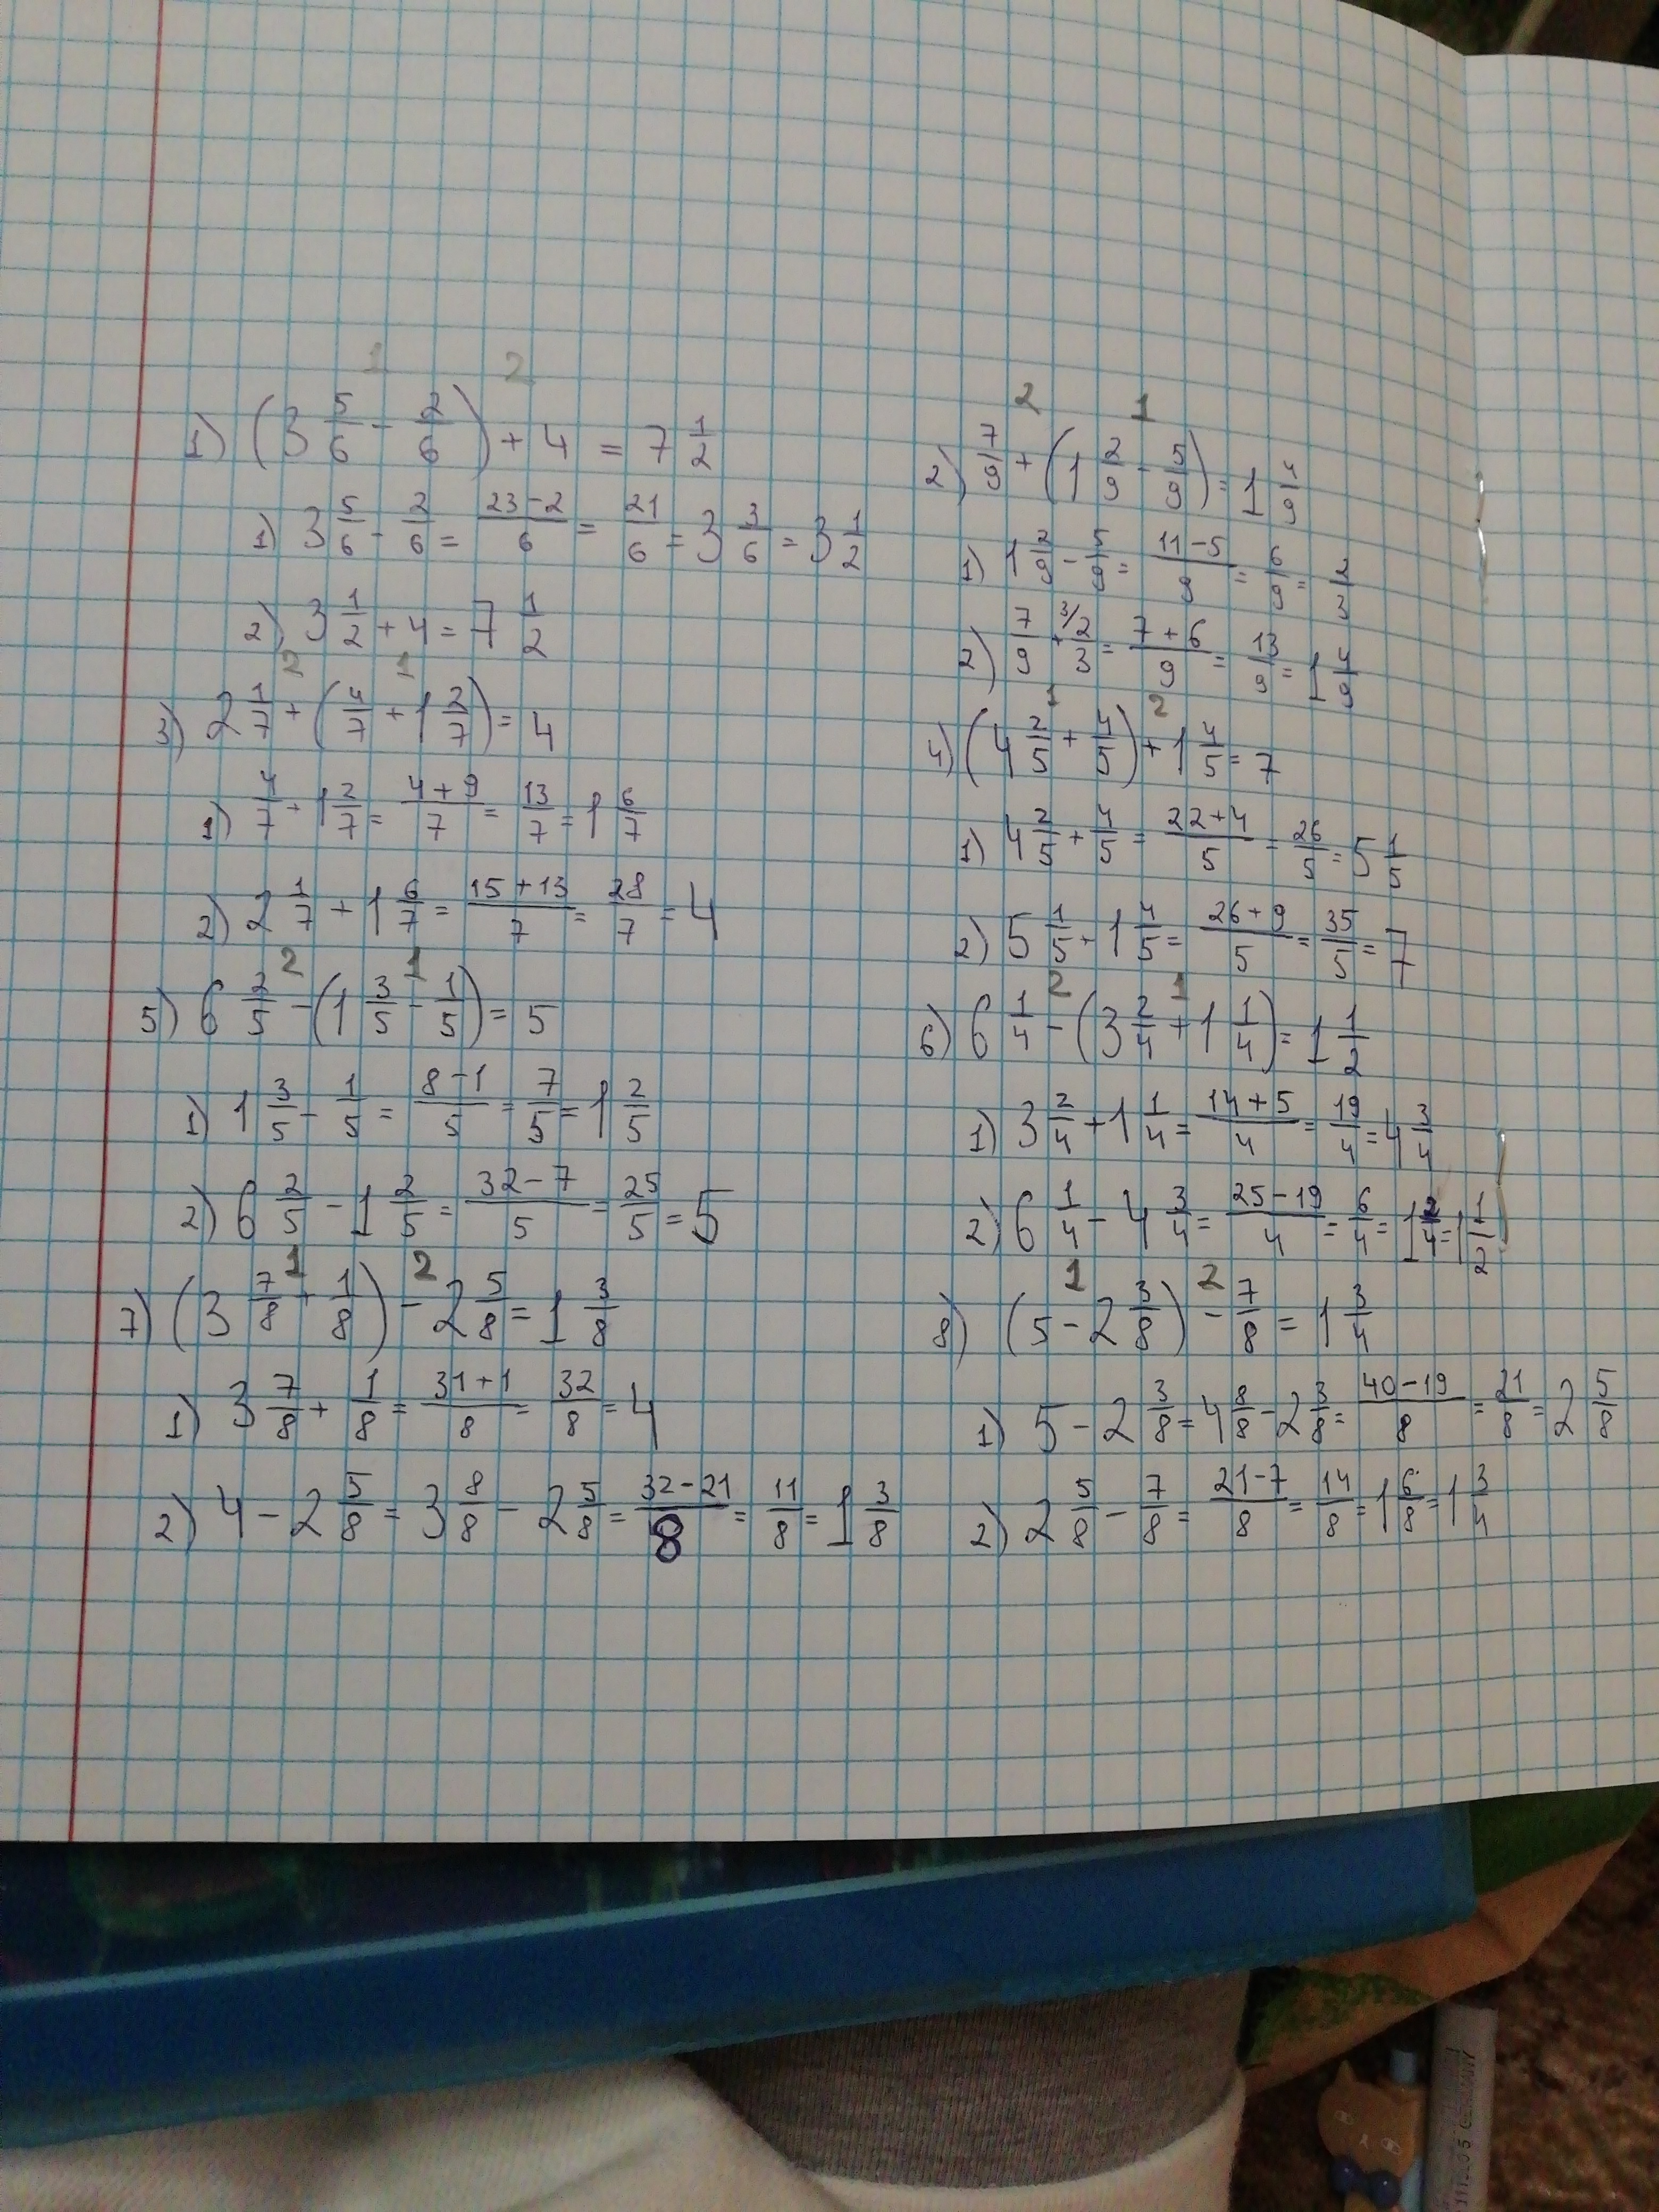 1 2
1) (3 5/6 - 2/6) + 4 = 7 1/2
1) 3 5/6 - 2/6 = (23-2)/6 = 21/6 = 3 3/6 = 3 1/2
2) 3 1/2 + 4 = 7 1/2
2 1
3) 2 1/7 + (4/7 + 1 2/7) = 4
1) 4/7 + 1 2/7 = (4+9)/7 = 13/7 = 1 6/7
2) 2 1/7 + 1 6/7 = (15+13)/7 = 28/7 = 4
2 1
5) 6 2/5 - (1 3/5 - 1/5) = 5
1) 1 3/5 - 1/5 = (8-1)/5 = 7/5 = 1 2/5
2) 6 2/5 - 1 2/5 = (32-7)/5 = 25/5 = 5
1 2
7) (3 7/8 + 1/8) - 2 5/8 = 1 3/8
1) 3 7/8 + 1/8 = (31+1)/8 = 32/8 = 4
2) 4 - 2 5/8 = 3 8/8 - 2 5/8 = (32-21)/8 = 11/8 = 1 3/8
2 1
2) 7/9 + (1 2/9 - 5/9) = 1 4/9
1) 1 2/9 - 5/9 = (11-5)/9 = 6/9 = 2/3
2) 7/9 + 3/ 2/3 = (7+6)/9 = 13/9 = 1 4/9
1 2
4) (4 2/5 + 4/5) + 1 4/5 = 7
1) 4 2/5 + 4/5 = (22+4)/5 = 26/5 = 5 1/5
2) 5 1/5 + 1 4/5 = (26+9)/5 = 35/5 = 7
2 1
6) 6 1/4 - (3 2/4 + 1 1/4) = 1 1/2
1) 3 2/4 + 1 1/4 = (14+5)/4 = 19/4 = 4 3/4
2) 6 1/4 - 4 3/4 = (25-19)/4 = 6/4 = 1 2/4 = 1 1/2
1 2
8) (5 - 2 3/8) - 7/8 = 1 3/4
1) 5 - 2 3/8 = 4 8/8 - 2 3/8 = (40-19)/8 = 21/8 = 2 5/8
2) 2 5/8 - 7/8 = (21-7)/8 = 14/8 = 1 6/8 = 1 3/4